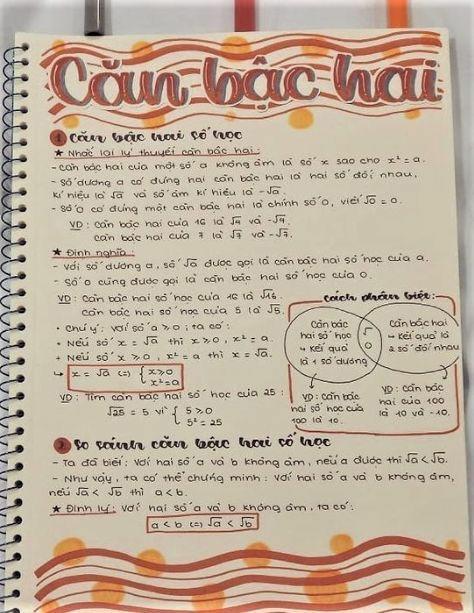 Căn bậc hai
1 Căn bậc hai số học
★ Nhắc lại lý thuyết căn bậc hai:
- Căn bậc hai của một số a không âm là số x sao cho x² = a.
- Số dương a có đúng hai căn bậc hai là hai số đối nhau,
kí hiệu là √a và số âm kí hiệu là -√a.
- Số 0 có đúng một căn bậc hai là chính số 0, viết √0 = 0.
VD: Căn bậc hai của 16 là và
căn bậc hai của 7 là √7 và -√7.
★ Định nghĩa:
- Với số dương a, số √a được gọi là căn bậc hai số học của a.
- Số 0 cũng được gọi là căn bậc hai số học của 0.
VD: Căn bậc hai số học của 16 là √16.
căn bậc hai số học của 5 là √5.
• Chú ý: với số a ≥ 0, ta có:
+ Nếu số x = √a thì x ≥ 0, x² = a.
+ Nếu số x ≥ 0, x² = a thì x = √a.
↳ x = √a ⇔ { x ≥ 0
x² = a
VD: Tìm căn bậc hai số học của 25:
√25 = 5 vì { 5 ≥ 0
5² = 25
cách phân biệt:
Căn bậc
hai số học
→ Kết quả
là 1 số dương
√
0
Căn bậc hai
→ Kết quả là
2 số đối nhau
VD: Căn bậc
hai số học của
100 là 10.
VD: Căn bậc
hai của 100
là 10 và -10.
2 So sánh căn bậc hai số học
- Ta đã biết: Với hai số a và b không âm, nếu a được thì √a < √b.
- Như vậy, ta có thể chứng minh: Với hai số a và b không âm,
nếu √a < √b thì a < b.
★ Định lý: Với hai số a và b không âm, ta có:
a < b (=) √a < √b